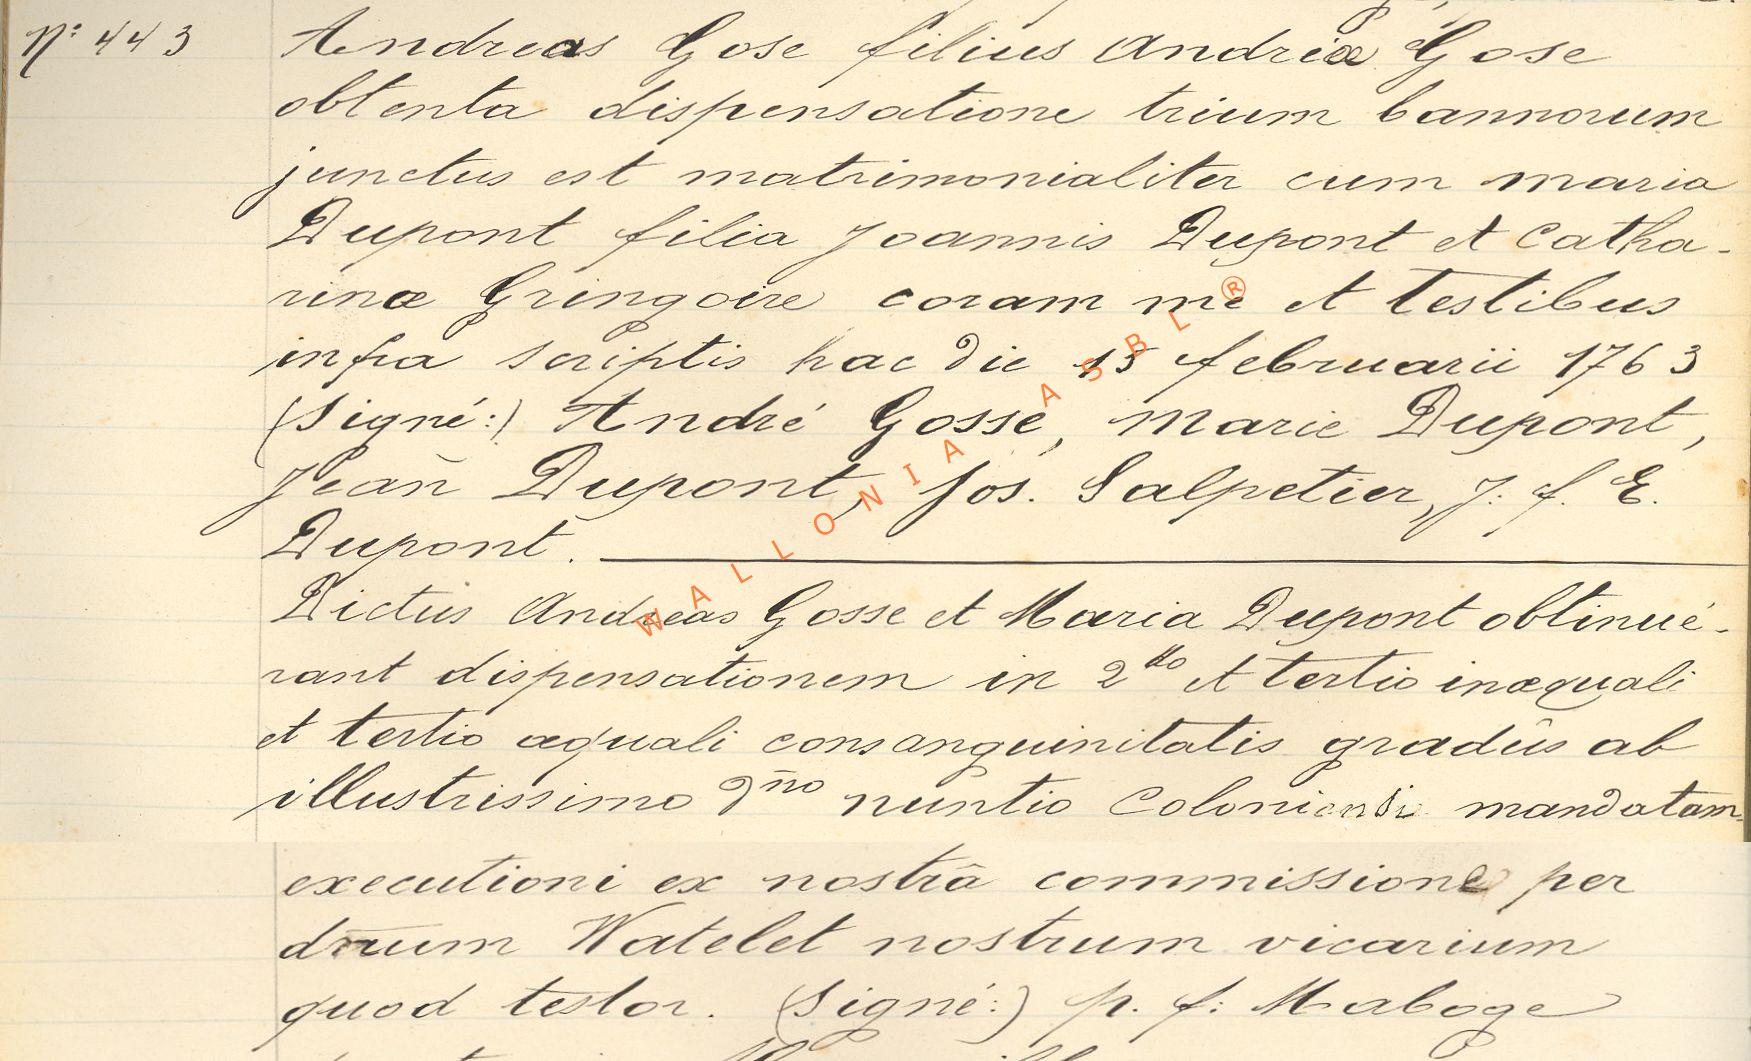 N° 443
Andreas Gose filius Andriæ Gose
obtenta dispensatione trium bannorum
junctus est matrimonialiter cum maria
Dupont filia Joannis Dupont et Catha-
rinæ Gringoire coram me et testibus
infra scriptis hac die 15 februarii 1763
(Signé:) André Gosse, Marie Dupont,
Jean Dupont, Jos. Salpetier, J: f. E.
Dupont.
Dictus Andreas Gosse et Maria Dupont obtinué-
rant dispensationem in 2do et tertio inæquali
et tertio æquali consanguinitatis gradûs ab
illustrissimo dño nuntio Coloniensi mandatam
executioni ex nostrâ commissione per
dnum Watelet nostrum vicarium
quod testor. (Signé:) p. f: Maboge
WALLONIA ASBL ®